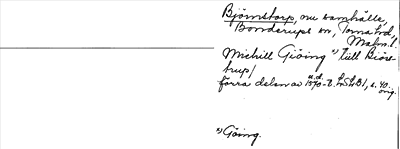 Björnstorp, nu samhälle,
Bonderups sn, Torna hd,
Malm. l.
Michill Giöing *) till Biörs-
trup/
förra delen av 1570-t. s. 40.
orig.
*) Göing.